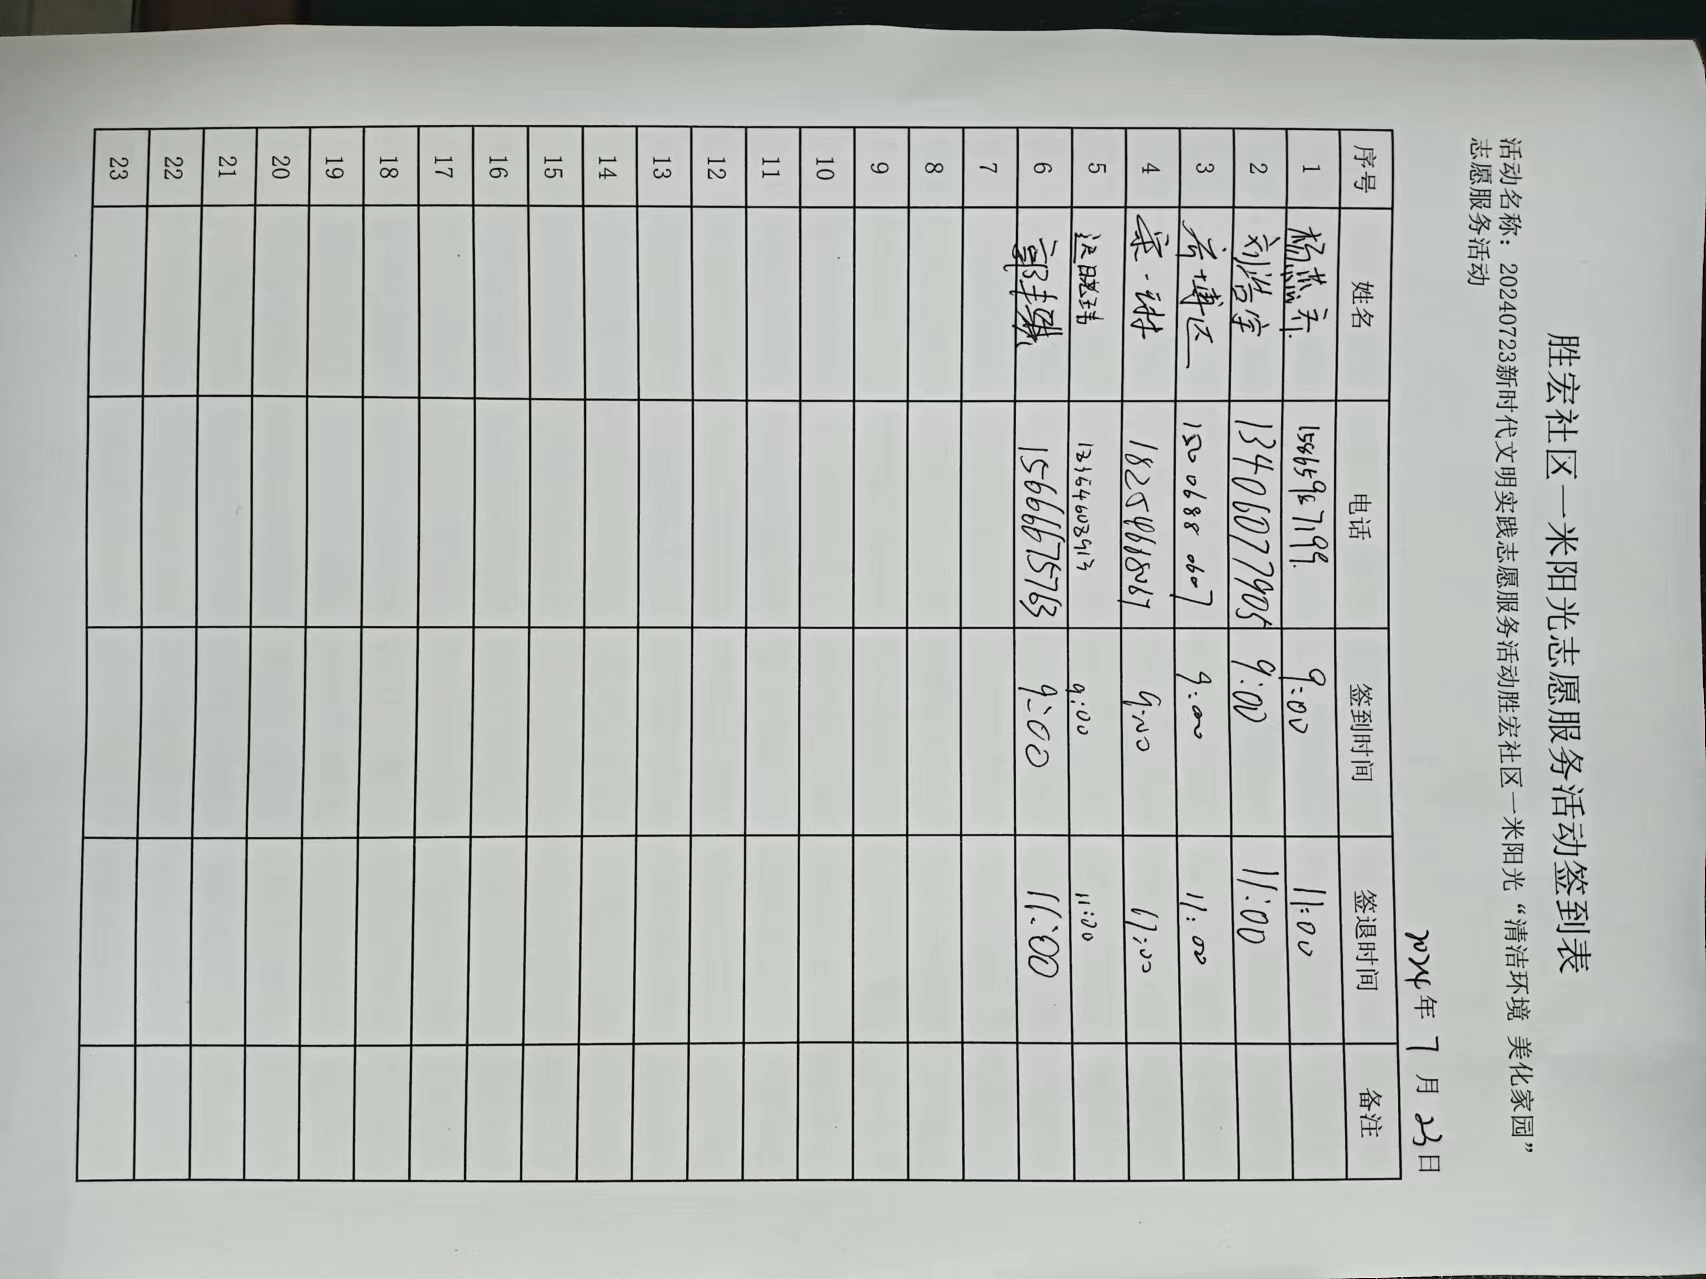 胜宏社区一米阳光志愿服务活动签到表
活动名称：20240723新时代文明实践志愿服务活动胜宏社区一米阳光“清洁环境 美化家园”
志愿服务活动
2024年 7 月 23日
序号 姓名 电话 签到时间 签退时间 备注
1 杨燕乔 9:00 11:00
2 刘浩宝 13406077905 9:00 11:00
3 15006880607 9:00 11:00
4 18254618067 9:00 11:00
5 9:00 11:00
6 15666675763 9:00 11:00
7
8
9
10
11
12
13
14
15
16
17
18
19
20
21
22
23